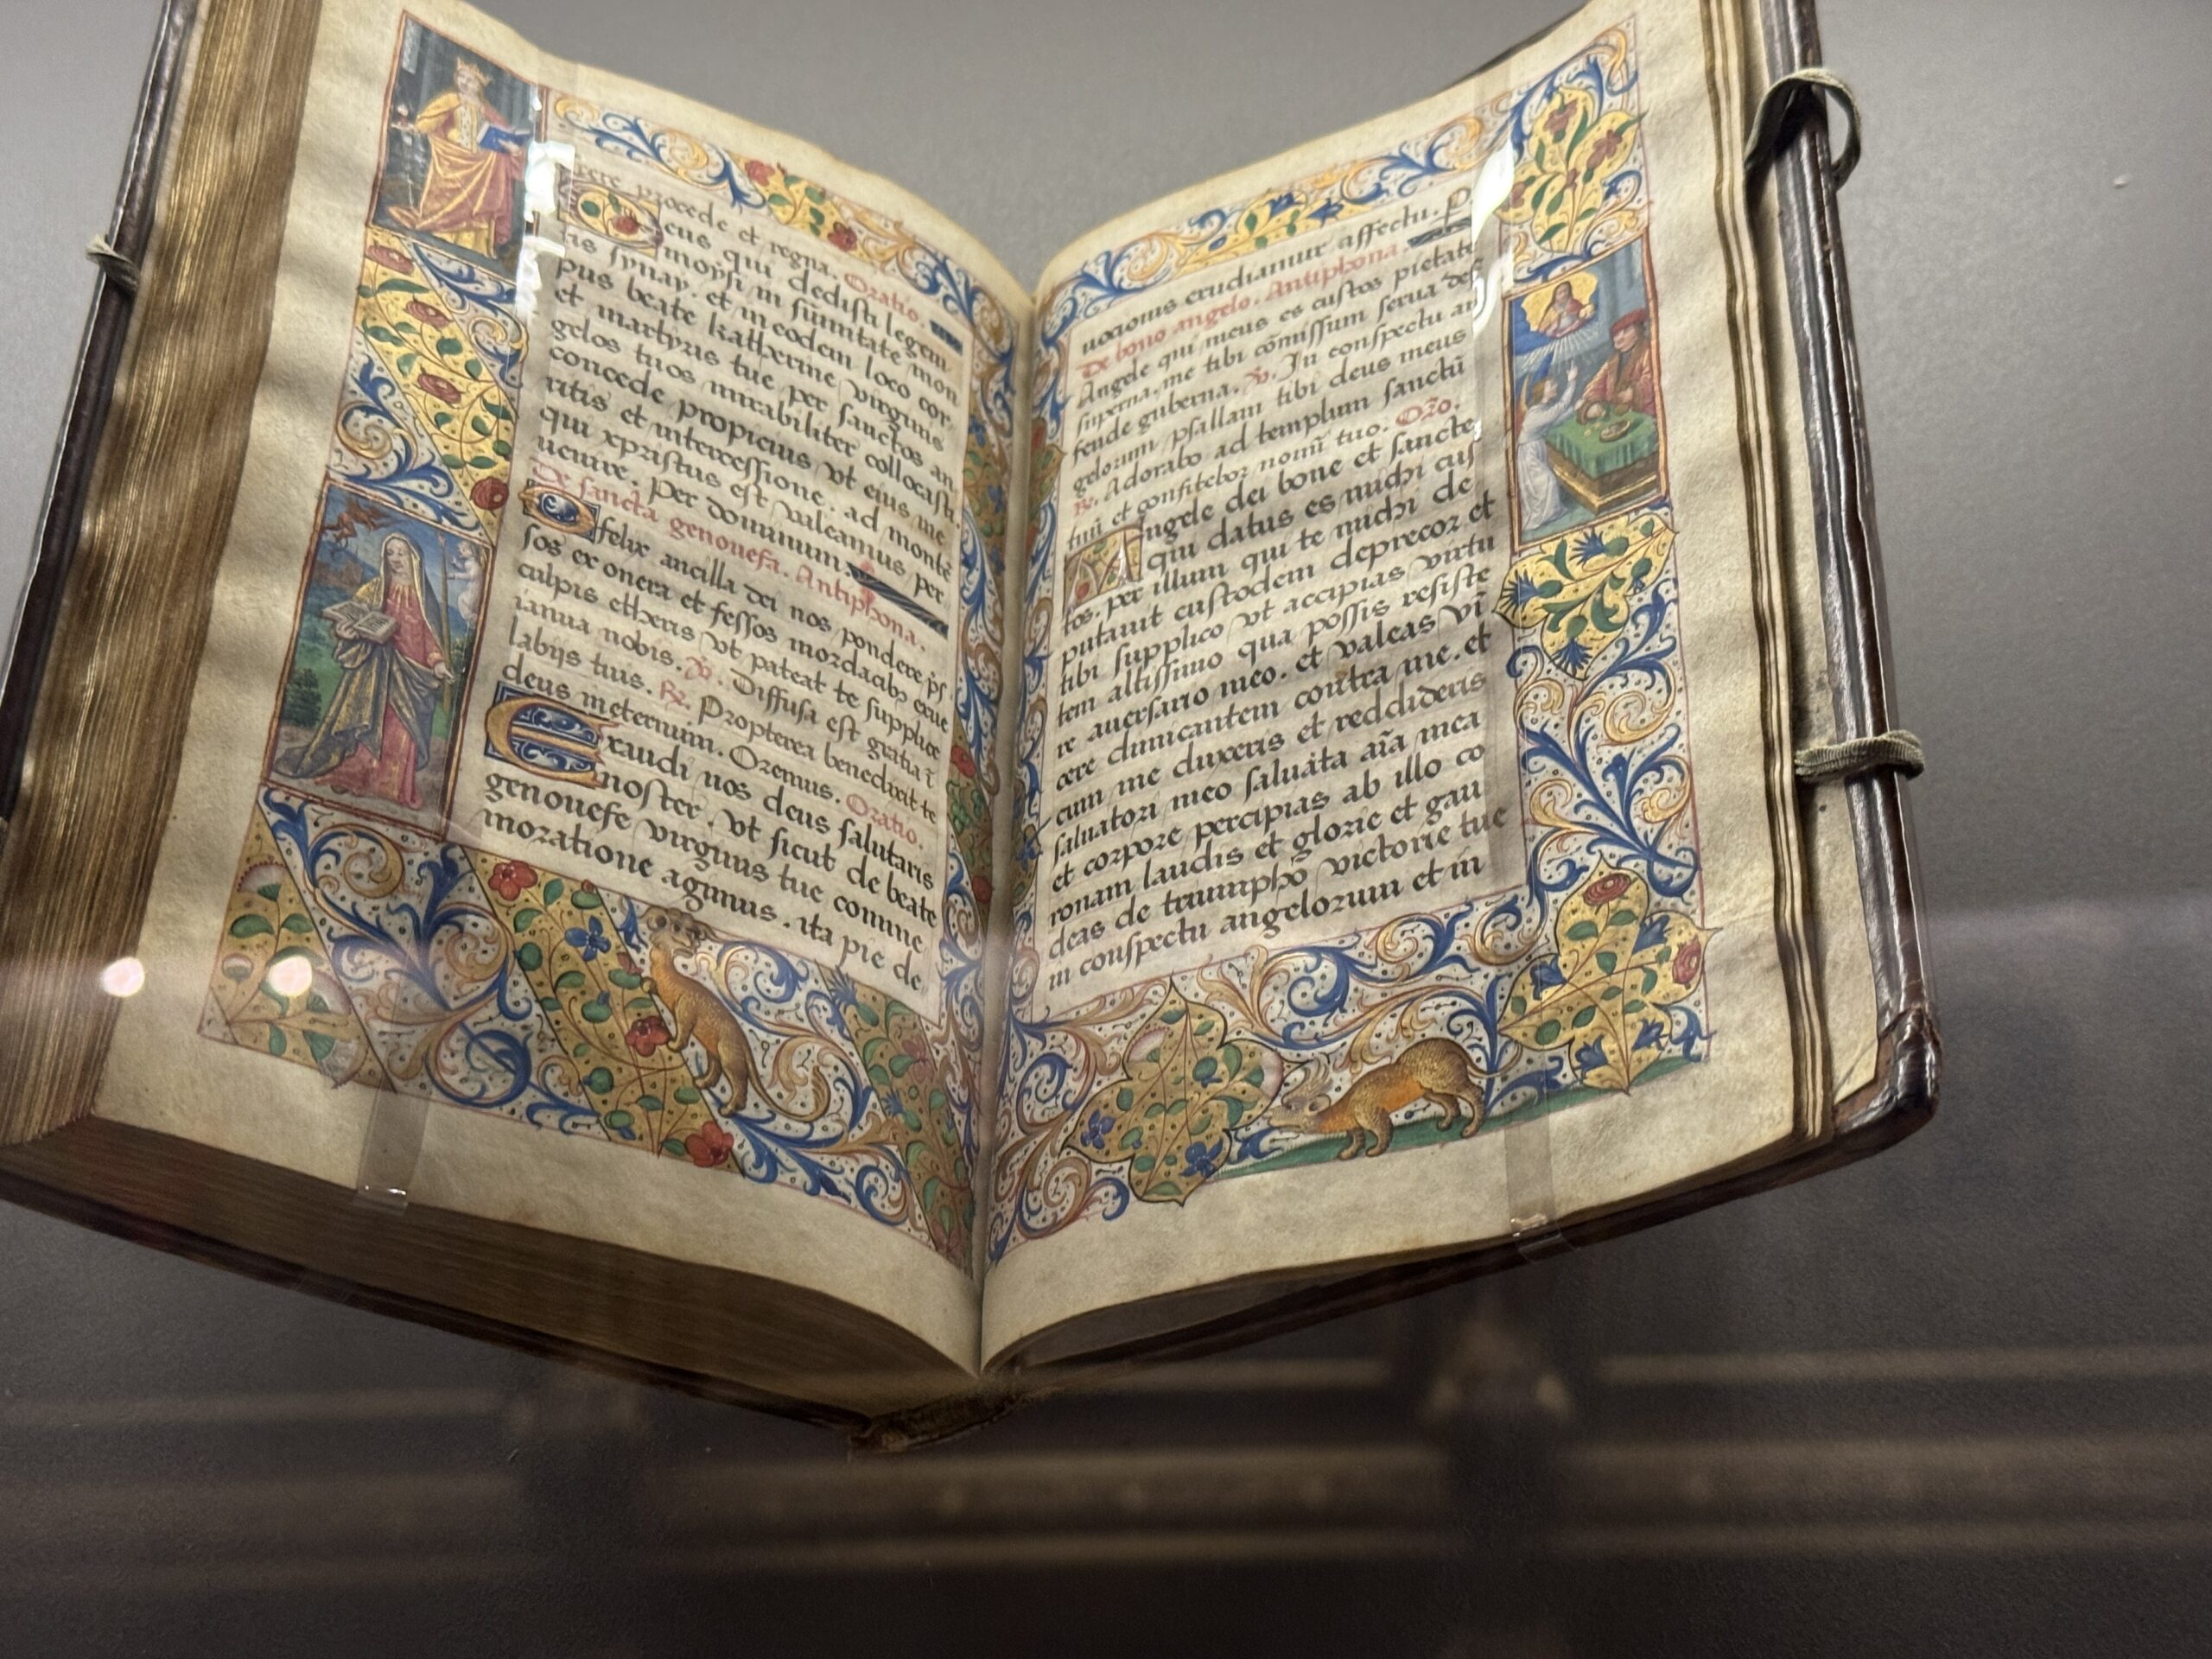 procede et regna. Oratio.
Deus qui dedisti legem
moysi in sumitate mon
tis synay. et in eodem loco cor
pus beate katherine virginis
et martyris tue per sanctos an
gelos tuos mirabiliter collocasti.
concede propicius vt eius me
ritis et intercessione. ad montē
qui xpristus est valeamus per
uenire. Per dominum.
De sancta genouefa. Antiphona.
O felix ancilla dei nos pondere ps
sos ex onera et fessos mordacibꝫ exue
culpis etheris vt pateat te supplice
ianua nobis. ℣. Diffusa est gratia ī
labijs tuis. ℟. Propterea benedixit te
deus in eternum. Oremus. Oratio.
Exaudi nos deus salutaris
noster. vt sicut de beate
genouefe virginis tue comme
moratione agimus. ita pie de
uocionis erudiamur affectu. P.
De bono angelo. Antiphona.
Angele qui meus es custos pietate
superna. me tibi cōmissum serua def
fende guberna. ℣. In conspectu an
gelorum psallam tibi deus meus
℟. Adorabo ad templum sanctū
tuū et confitebor nomī tuo. Oro.
Angele dei bone et sancte
qui datus es michi cus
tos. per illum qui te michi de
putauit custodem deprecor et
tibi supplico vt accipias virtu
tem altissimo qua possis resiste
re auersario meo. et valeas vī
cere dimicantem contra me. et
cum me duxeris et reddideris
saluatori meo saluāta aīa mea
et corpore percipias ab illo co
ronam laudis et glorie et gau
deas de triumpho victorie tue
in conspectu angelorum et in